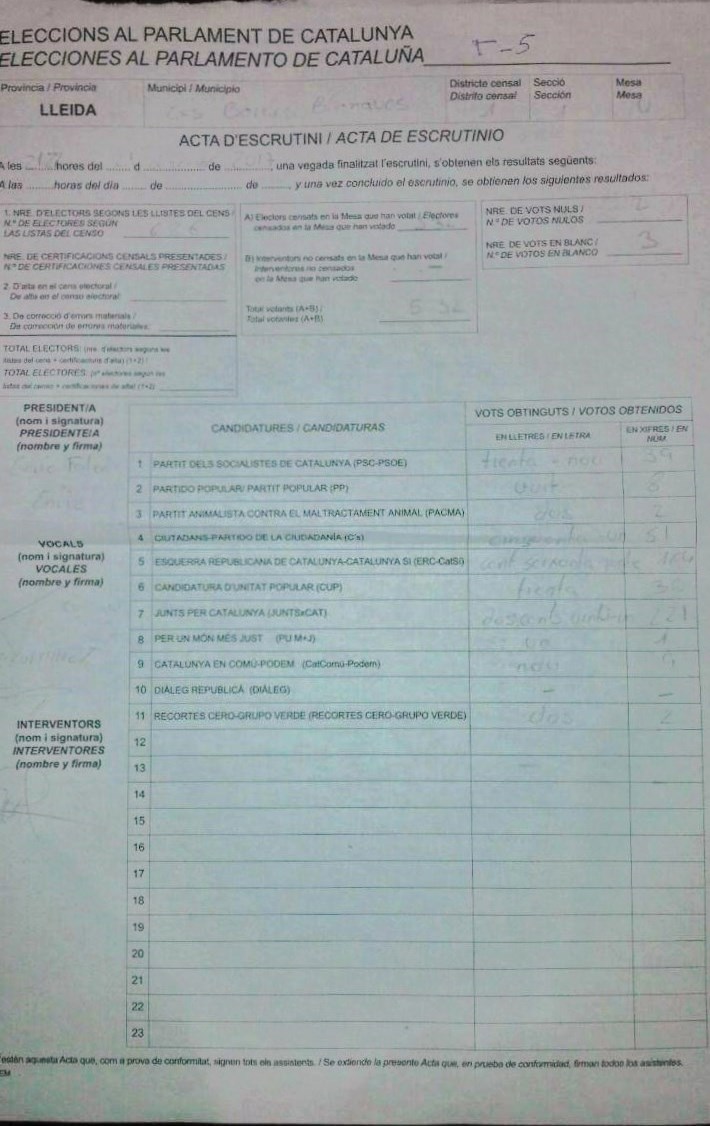 ELECCIONS AL PARLAMENT DE CATALUNYA
ELECCIONES AL PARLAMENTO DE CATALUÑA T-5
Provincia / Provincia Municipi / Municipio Districte censal Secció Mesa
Distrito censal Sección Mesa
LLEIDA Les Borges Blanques 1 1 U
ACTA D'ESCRUTINI / ACTA DE ESCRUTINIO
A les hores del d de , una vegada finalitzat l'escrutini, s'obtenen els resultats següents:
A las horas del día de de , y una vez concluido el escrutinio, se obtienen los siguientes resultados:
1. NRE. D'ELECTORS SEGONS LES LLISTES DEL CENS /
N.º DE ELECTORES SEGÚN
LAS LISTAS DEL CENSO
NRE. DE CERTIFICACIONS CENSALS PRESENTADES /
N.º DE CERTIFICACIONES CENSALES PRESENTADAS
2. D'alta en el cens electoral /
De alta en el censo electoral:
3. De correcció d'errors materials /
De corrección de errores materiales:
TOTAL ELECTORS: (nre. d'electors segons les
llistes del cens + certificacions d'alta) (1+2) /
TOTAL ELECTORES: (nº electores según las
listas del censo + certificaciones de alta) (1+2)
A) Electors censats en la Mesa que han votat / Electores
censados en la Mesa que han votado
B) Interventors no censats en la Mesa que han votat /
Interventores no censados
en la Mesa que han votado
Total votants (A+B) /
Total votantes (A+B) 532
NRE. DE VOTS NULS /
N.º DE VOTOS NULOS 2
NRE. DE VOTS EN BLANC /
N.º DE VOTOS EN BLANCO 3
PRESIDENT/A
(nom i signatura)
PRESIDENTE/A
(nombre y firma)
VOCALS
(nom i signatura)
VOCALES
(nombre y firma)
INTERVENTORS
(nom i signatura)
INTERVENTORES
(nombre y firma)
CANDIDATURES / CANDIDATURAS VOTS OBTINGUTS / VOTOS OBTENIDOS
EN LLETRES / EN LETRA EN XIFRES / EN NÚM
1 PARTIT DELS SOCIALISTES DE CATALUNYA (PSC-PSOE) trenta-nou 39
2 PARTIDO POPULAR/ PARTIT POPULAR (PP) vuit 8
3 PARTIT ANIMALISTA CONTRA EL MALTRACTAMENT ANIMAL (PACMA) dos 2
4 CIUTADANS-PARTIDO DE LA CIUDADANÍA (C's) cinquanta un 51
5 ESQUERRA REPUBLICANA DE CATALUNYA-CATALUNYA SÍ (ERC-CatSí) cent
6 CANDIDATURA D'UNITAT POPULAR (CUP) trenta 30
7 JUNTS PER CATALUNYA (JUNTSxCAT) 221
8 PER UN MÓN MÉS JUST (PUM+J) un 1
9 CATALUNYA EN COMÚ-PODEM (CatComú-Podem) nou 9
10 DIÀLEG REPUBLICÀ (DIÀLEG) - -
11 RECORTES CERO-GRUPO VERDE (RECORTES CERO-GRUPO VERDE) dos 2
12
13
14
15
16
17
18
19
20
21
22
23
estén aquesta Acta que, com a prova de conformitat, signen tots els assistents. / Se extiende la presente Acta que, en prueba de conformidad, firman todos los asistentes.